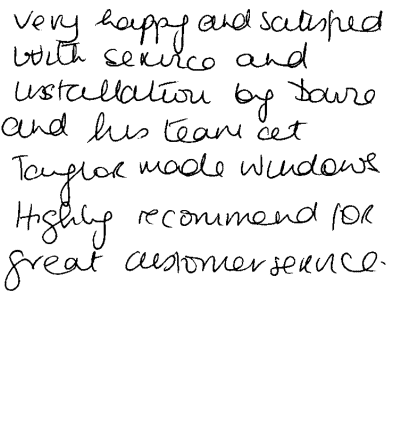 Very happy and satisfied
with service and
installation by Dave
and his team at
Taylor made windows
Highly recommend for
great customer service.